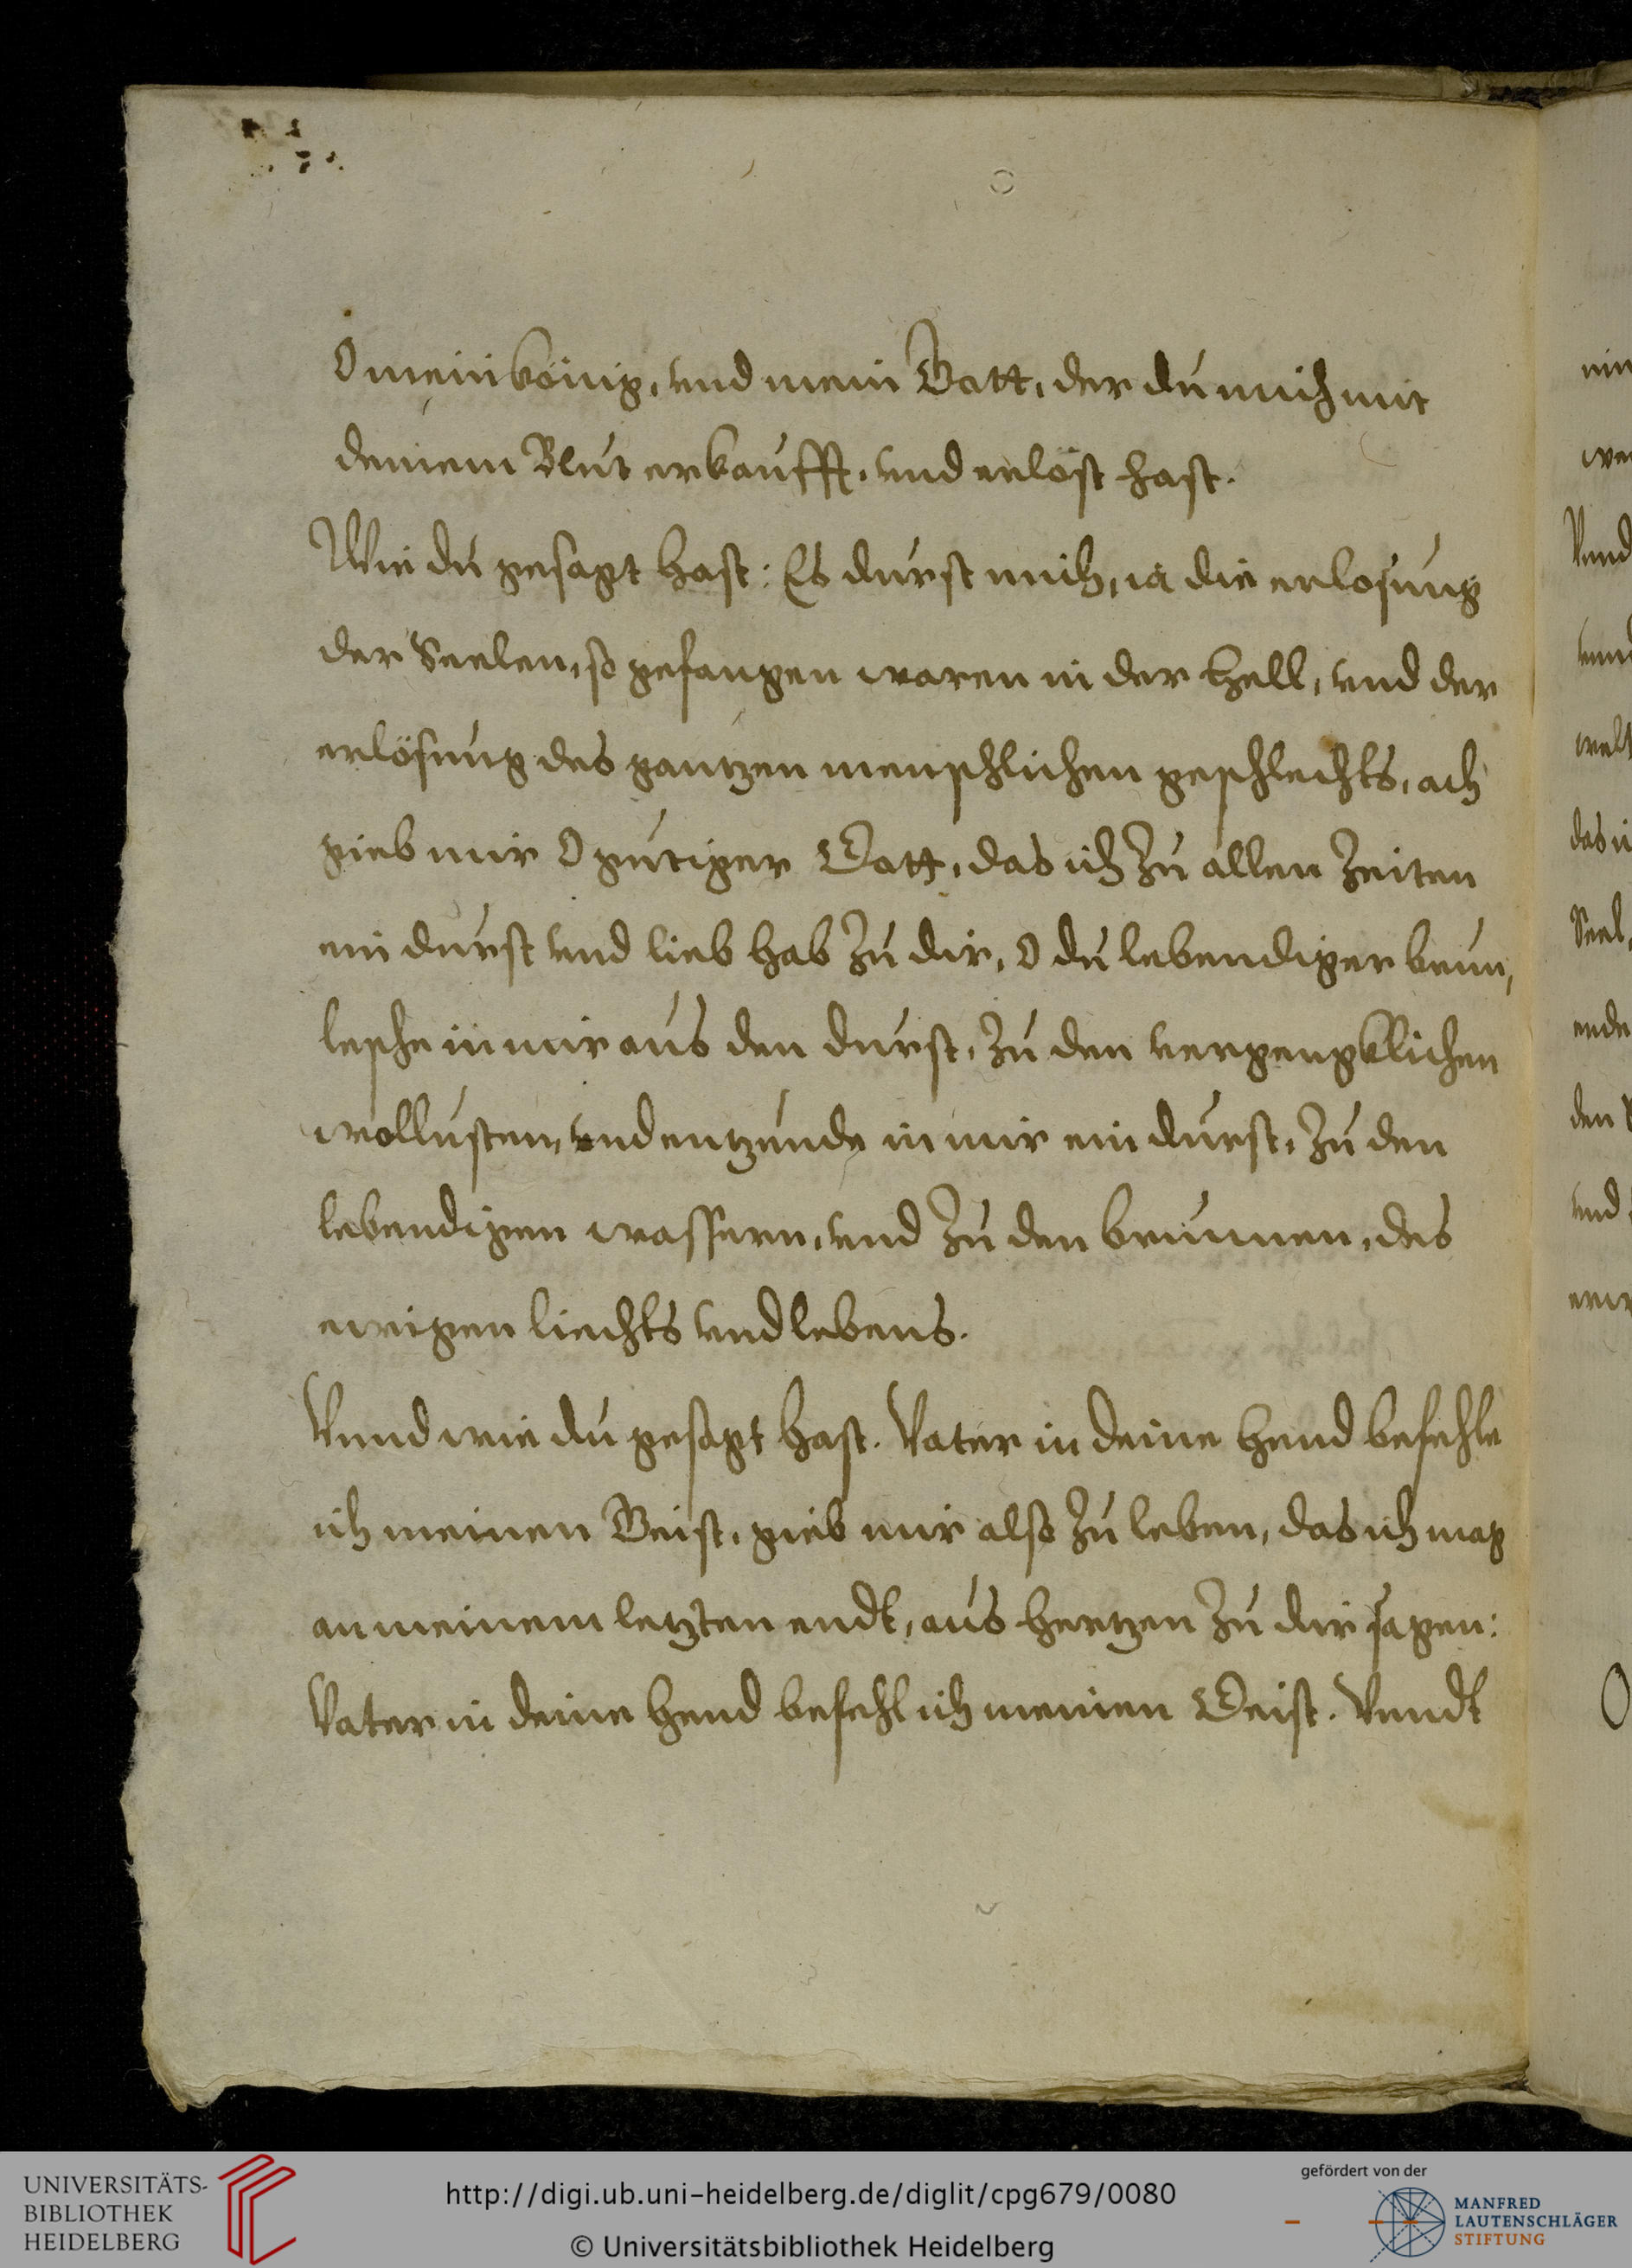 O mein könig, vnd mein Gott, der du mich mit
deinem Blut erkaufft, vnd erlöst hast.
Wie du gesagt hast: Es durst mich, ia die erlosung
der Seelen, so gefangen waren in der hell, vnd der
erlösung des gantzen menschlichen geschlechts, ach
gieb mir O gutiger Gott, das ich zu allen zeiten
ein durst vnd lieb hab zu dir, O du lebendiger brun,
lesche in mir aus den durst, zu den vergengklichen
wollusten, vnd entzunde in mir ein durst, zu den
lebendigen wassern, vnd zu den brunnen, des
ewigen liechts vnd lebens.
Vnnd wie du gesagt hast. Vater in deine hend befehle
ich meinen Geist, gieb mir also zu leben, das ich mag
an meinem letzten endt, aus hertzen zu dir sagen:
Vater in deine hend befehl ich meinen Geist. Vnndt
welt
das
Seel,
ende
den
vnd
UNIVERSITÄTS-
BIBLIOTHEK
HEIDELBERG
http://digi.ub.uni-heidelberg.de/diglit/cpg679/0080
© Universitätsbibliothek Heidelberg
gefördert von der
MANFRED
LAUTENSCHLÄGER
STIFTUNG